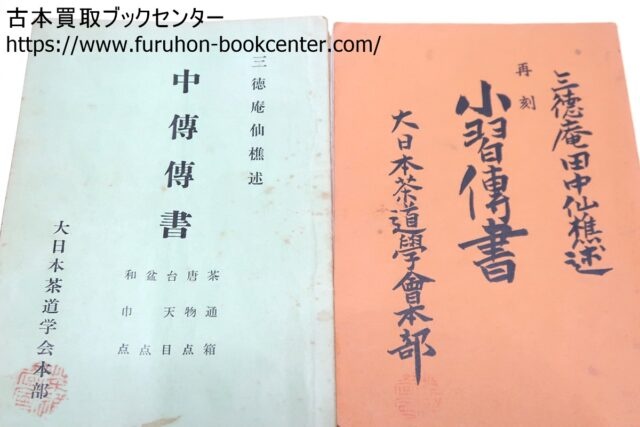 古本買取ブックセンター
https://www.furuhon-bookcenter.com/
三徳庵田中仙樵述
再刻
小習傳書
大日本茶道學會本部
三徳庵仙樵述
中傳傳書
茶通箱
唐物点
台天目
盆点
和巾点
大日本茶道学会本部